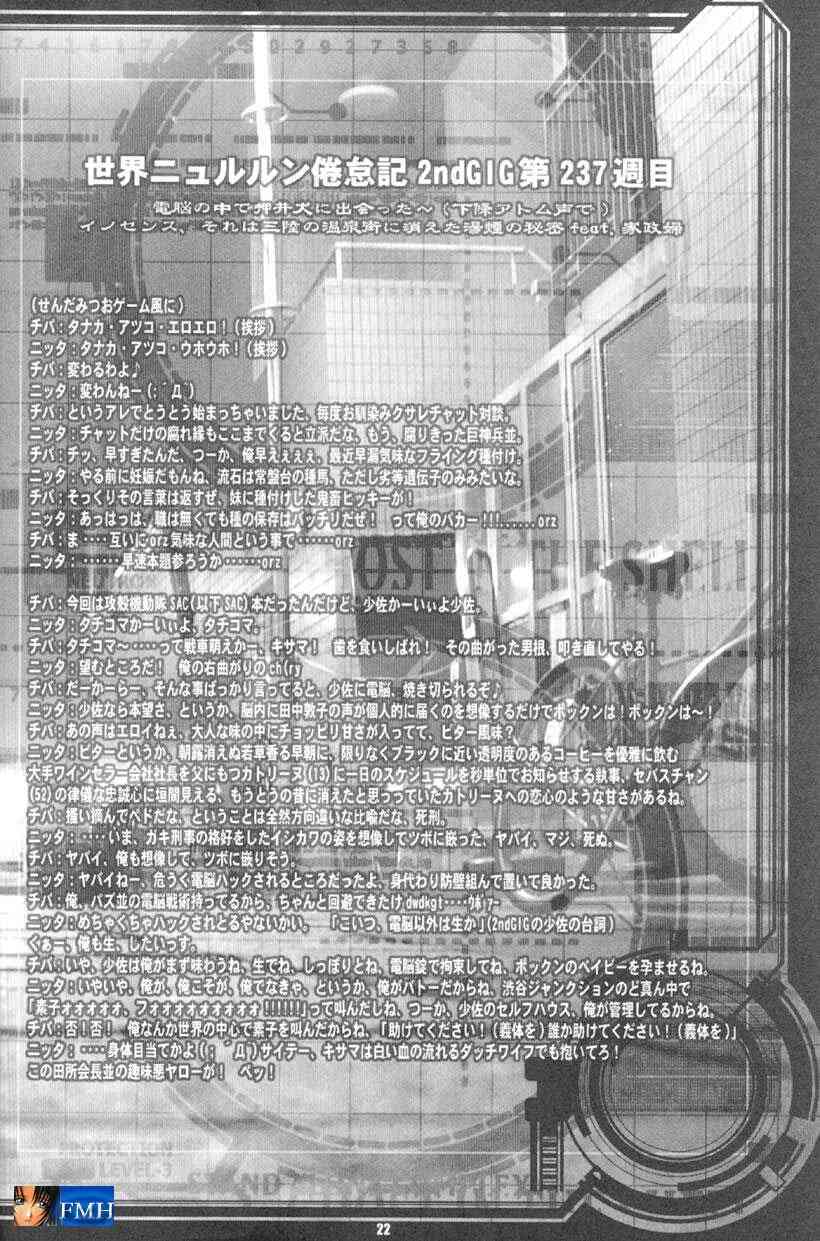 世界ニュルルン倦怠記 2ndGIG第 237週目
電脳の中で押井犬に出会った～(下條アトム声で)
イノセンス、それは三陸の温泉街に消えた湯煙の秘密 feat, 家政婦
(せんだみつおゲーム風に)
チバ：タナカ・アツコ・エロエロ！(挨拶)
ニッタ：タナカ・アツコ・ウホウホ！(挨拶)
チバ：変わるわよ♪
ニッタ：変わんねー(；´Д`)
チバ：というアレでとうとう始まっちゃいました、毎度お馴染みクサレチャット対談。
ニッタ：チャットだけの腐れ縁もここまでくると立派だな、もう、腐りきった巨神兵並。
チバ：チッ、早すぎたんだ、つーか、俺早えぇぇぇ、最近早漏気味なフライング種付け。
ニッタ：やる前に妊娠だもんね、流石は常盤台の種馬、ただし劣等遺伝子のみみたいな。
チバ：そっくりその言葉は返すぜ、妹に種付けした鬼畜ヒッキーが！
ニッタ：あっはっは、職は無くても種の保存はバッチリだぜ！　って俺のバカー！!!......orz
チバ：ま‥‥互いにorz気味な人間という事で‥‥‥orz
ニッタ：‥‥‥早速本題参ろうか‥‥‥orz
チバ：今回は攻殻機動隊SAC(以下SAC)本だったんだけど、少佐かーいぃよ少佐。
ニッタ：タチコマかーいぃよ、タチコマ。
チバ：タチコマ～‥‥って戦車萌えかー、キサマ！　歯を食いしばれ！　その曲がった男根、叩き直してやる！
ニッタ：望むところだ！　俺の右曲がりのch(ry
チバ：だーかーらー、そんな事ばっかり言ってると、少佐に電脳、焼き切られるぞ♪
ニッタ：少佐なら本望さ、というか、脳内に田中敦子の声が個人的に届くのを想像するだけでボックンは！ボックンは～！
チバ：あの声はエロイねぇ、大人な味の中にチョッピリ甘さが入ってて、ビター風味？
ニッタ：ビターというか、朝露消えぬ若草香る早朝に、限りなくブラックに近い透明度のあるコーヒーを優雅に飲む
大手ワインセラー会社社長を父にもつカトリーヌ(13)に一日のスケジュールを秒単位でお知らせする執事、セバスチャン
(52)の律儀な忠誠心に垣間見える、もうとうの昔に消えたと思っっていたカトリーヌへの恋心のような甘さがあるね。
チバ：掻い摘んでペドだな、ということは全然方向違いな比喩だな、死刑。
ニッタ：‥‥いま、ガキ刑事の格好をしたイシカワの姿を想像してツボに嵌った、ヤバイ、マジ、死ぬ。
チバ：ヤバイ、俺も想像して、ツボに嵌りそう。
ニッタ：ヤバイねー、危うく電脳ハックされるところだったよ、身代わり防壁組んで置いて良かった。
チバ：俺、バズ並の電脳戦術持ってるから、ちゃんと回避できたけdwdkgt‥‥ｳﾎﾞｧｰ
ニッタ：めちゃくちゃハックされとるやないかい。　「こいつ、電脳以外は生か」(2ndGIGの少佐の台詞)
くぁー、俺も生、したいっす。
チバ：いや、少佐は俺がまず味わうね、生でね、しっぽりとね、電脳錠で拘束してね、ボックンのベイビーを孕ませるね。
ニッタ：いやいや、俺が、俺こそが、俺でなきゃ、というか、俺がバトーだからね、渋谷ジャンクションのど真ん中で
「素子ォォォォォ、フォォォォォォォォォ!!!!!!」って叫んだしね、つーか、少佐のセルフハウス、俺が管理してるからね。
チバ：否！否！　俺なんか世界の中心で素子を叫んだからね、「助けてください！(義体を)誰か助けてください！(義体を)」
ニッタ：‥‥身体目当てかよ(；´Д`)サイテー、キサマは白い血の流れるダッチワイフでも抱いてろ！
この田所会長並の趣味悪ヤローが！　ペッ！
PROTECTION
LEVEL-3
FMH
22